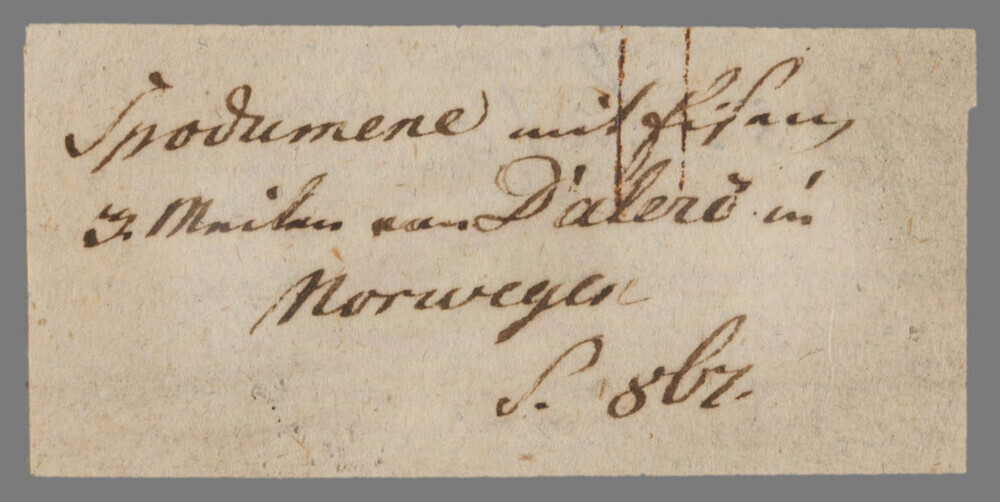 Spodumene mit Eisen,
3. Meilen von D'alerö in
Norwegen
S. 867.